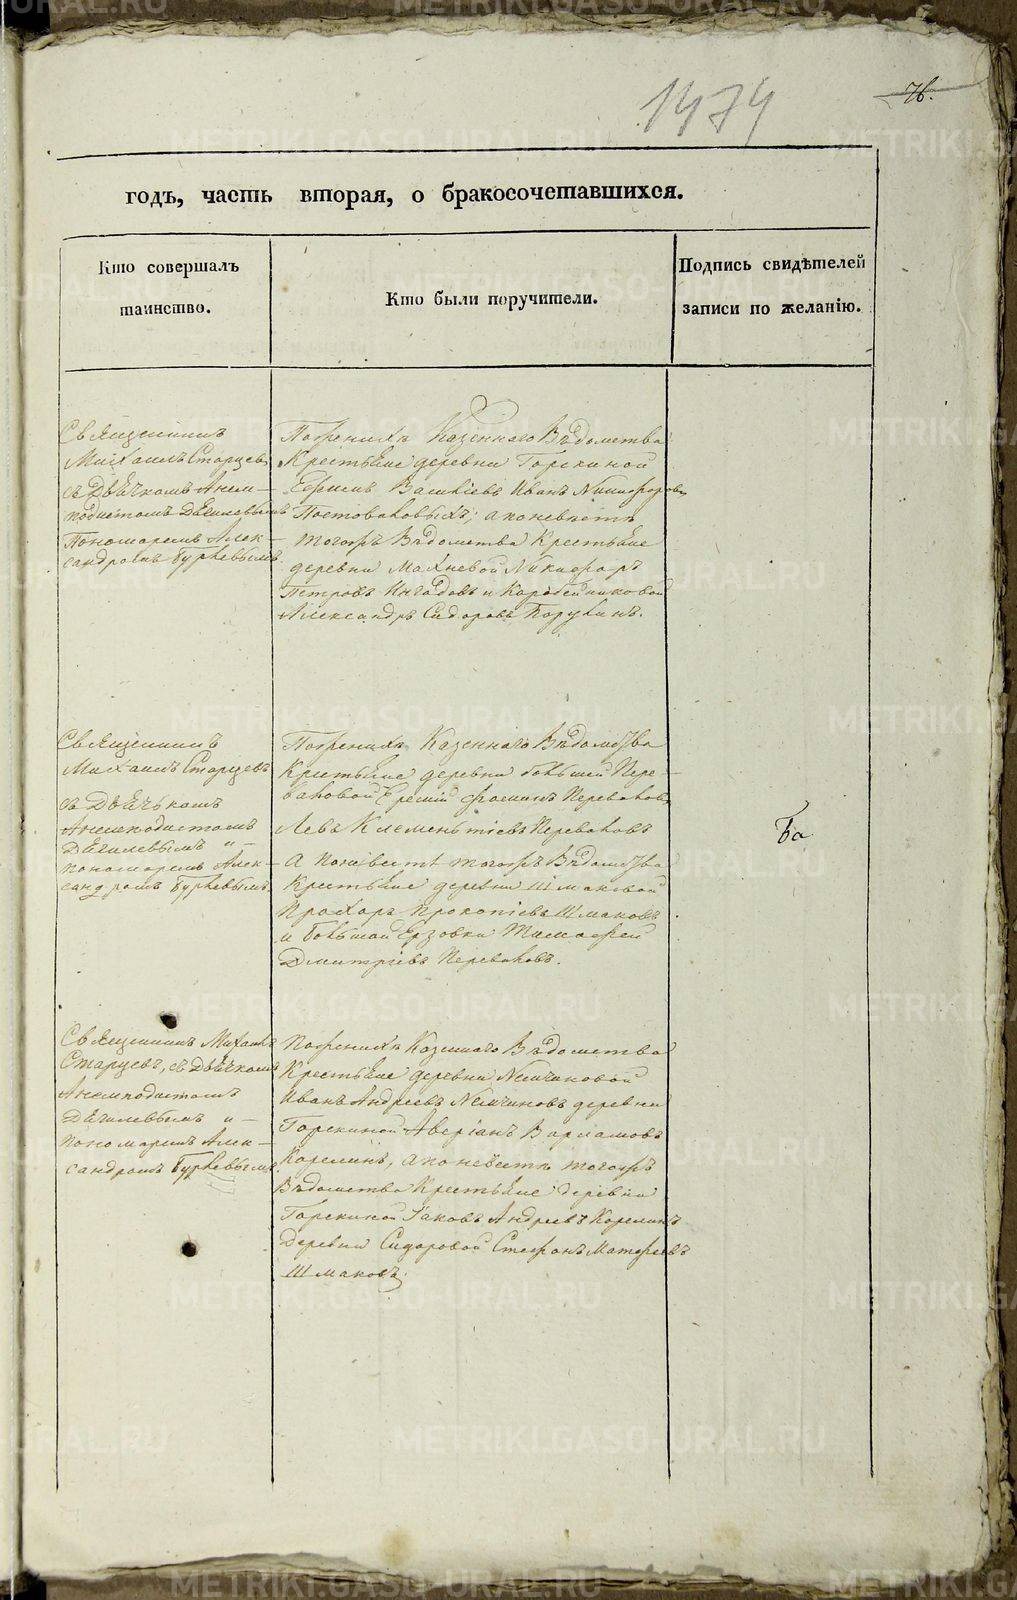 1474
76.
годъ, часть вторая, о бракосочетавшихся.
Кто совершалъ
таинство.
Кто были поручители.
Подпись свидѣтелей
записи по желанію.
Священникъ
Михаилъ Старцевъ
съ Дьячкомъ Анем-
подистомъ Дягилевымъ
Пономаремъ Алек-
сандромъ
По женихѣ Казеннаго Вѣдомства
Крестьяне деревни Горскиной
Ефимъ Василіевъ Иванъ Никифоровъ
а по невѣстѣ
тогожъ Вѣдомства Крестьяне
деревни Махневой Никифоръ
Петровъ и Коробейниковой
Александръ Сидоровъ
Священникъ
Михаилъ Старцевъ
съ Дьячькомъ
Анемподистомъ
Дягилевымъ и
пономаремъ Алек-
сандромъ
По женихѣ Казеннаго Вѣдомства
Крестьяне деревни большей Пере-
валовой Еремій Фоминъ Переваловъ
Левъ Клементіевъ Переваловъ
А по невѣстѣ тогожъ Вѣдомства
Крестьяне деревни Шмаковой
Прохоръ Прокопіевъ Шмаковъ
и большой Ерзовки Тимофей
Дмитріевъ Переваловъ.
Ба
Священникъ Михаилъ
Старцевъ, съ Дьячкомъ
Анемподистомъ
Дягилевымъ и
Пономаремъ Алек-
сандромъ
По женихѣ Казеннаго Вѣдомства
Крестьяне деревни Немчиновой
Иванъ Андреевъ Немчиновъ деревни
Горскиной Аверіанъ Варламовъ
Корелинъ, а по невѣстѣ тогожъ
Вѣдомства Крестьяне деревни
Горскиной Іаковъ Андреевъ Корелинъ
Деревни Сидоровой Стефанъ Матфеевъ
Шмаковъ.
METRIKI.GASO-URAL.RU